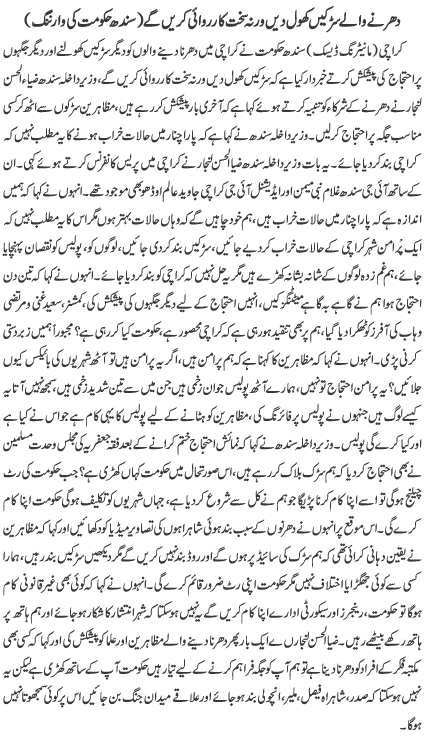 دھرنے والے سڑکیں کھول دیں ورنہ سخت کارروائی کریں گے (سندھ حکومت کی وارننگ)
کراچی (مانیٹرنگ ڈیسک) سندھ حکومت نے کراچی میں دھرنا دینے والوں کو دیگر سڑکیں کھولنے اور دیگر جگہوں
پر احتجاج کی پیشکش کرتے خبردار کیا ہے کہ سڑکیں کھول دیں ورنہ سخت کارروائی کریں گے، وزیر داخلہ سندھ ضیاء الحسن
لنجار نے دھرنے کے شرکاء کو تنبیہ کرتے ہوئے کہا ہے کہ آخری بار پیشکش کر رہے ہیں، مظاہرین سڑکوں سے اٹھ کر کسی
مناسب جگہ پر احتجاج کرلیں۔ وزیر داخلہ سندھ نے کہا کہ پارا چنار میں حالات خراب ہونے کا یہ مطلب نہیں کہ
کراچی بند کر دیا جائے۔ یہ بات وزیر داخلہ سندھ ضیاء الحسن لنجار نے کراچی میں پریس کانفرنس کرتے ہوئے کہی۔ ان
کے ساتھ آئی جی سندھ غلام نبی میمن اور ایڈیشنل آئی جی کراچی جاوید عالم اوڈھو بھی موجود تھے۔ انہوں نے کہا کہ ہمیں
اندازہ ہے کہ پارا چنار میں حالات خراب ہیں، ہم خود چاہیں گے کہ وہاں حالات بہتر ہوں مگر اس کا یہ مطلب نہیں کہ
ایک پرامن شہر کراچی کے حالات خراب کر دیے جائیں، سڑکیں بند کر دی جائیں، لوگوں کو، پولیس کو نقصان پہنچایا
جائے، ہم غم زدہ لوگوں کے شانہ بشانہ کھڑے ہیں مگر یہ حل نہیں کہ کراچی کو بند کر دیا جائے۔ انہوں نے کہا کہ تین دن
احتجاج ہوا ہم نے گاہے بگاہے میٹنگز کیں، انہیں احتجاج کے لیے دیگر جگہوں کی پیشکش کی، کمشنر، سعید غنی و مرتضی
وہاب کی آفرز کو ٹھکرا دیا گیا، ہم پر بھی تنقید ہو رہی ہے کہ کراچی محصور ہے، حکومت کیا کر رہی ہے؟ مجبوراً ہمیں زبردستی
کرنی پڑی۔ انہوں نے کہا کہ مظاہرین کا کہنا ہے کہ ہم پرامن ہیں، اگر یہ پرامن ہیں تو آٹھ شہریوں کی بائیکس کیوں
جلائیں؟ یہ پرامن احتجاج تو نہیں، ہمارے آٹھ پولیس جوان زخمی ہوئے ہیں جن میں سے تین شدید زخمی ہیں، سمجھ نہیں آتا یہ
کیسے لوگ ہیں جنہوں نے پولیس پر فائرنگ کی، مظاہرین کو ہٹانے کے لیے پولیس کا یہی کام ہے جو اس نے کیا ہے
اور کیا کرے گی پولیس۔ وزیر داخلہ سندھ نے کہا کہ نمائش احتجاج ختم کرانے کے بعد فقہ جعفریہ کی مجلس وحدت مسلمین
نے بھی احتجاج کر دیا کہ ہم سڑک بلاک کر رہے ہیں، اس صورتحال میں حکومت کہاں کھڑی ہے؟ جب حکومت کی رٹ
چیلنج ہوگی تو اسے اپنا کام کرنا پڑیگا جو ہم نے کل سے شروع کر دیا ہے، جہاں شہریوں کو تکلیف ہوگی حکومت اپنا کام
کرے گی۔ اس موقع پر انہوں نے دھرنوں کے سبب بند ہوئی شاہراہوں کی تصاویر میڈیا کو دکھائیں اور کہا کہ مظاہرین
نے یقین دہانی کرائی تھی کہ ہم سڑک کی سائیڈ پر ہوں گے اور روڈ بند نہیں کریں گے مگر دیکھیں سڑکیں بند ہیں، ہمارا
کسی سے کوئی جھگڑا یا اختلاف نہیں مگر حکومت اپنی رٹ ضرور قائم کرے گی۔ انہوں نے کہا کہ کوئی بھی غیر قانونی کام
ہوگا تو حکومت، رینجرز اور سیکورٹی ادارے اپنا کام کریں گے یہ نہیں ہو سکتا کہ شہر انتشار کا شکار ہو جائے اور ہم ہاتھ پر
ہاتھ رکھے بیٹھے رہیں۔ ضیاء الحسن لنجار نے ایک بار پھر دھرنا دینے والے مظاہرین اور علما کو پیشکش کی اور کہا کہ کسی بھی
مکتبہ فکر کے افراد کو دھرنا دینا ہے تو ہم آپ کو جگہ فراہم کرنے کے لیے تیار ہیں حکومت آپ کے ساتھ کھڑی ہے لیکن یہ
نہیں ہو سکتا کہ صدر، شاہراہ فیصل، ملیر، انچولی بند ہو جائے اور علاقے میدان جنگ بن جائیں اس پر کوئی سمجھوتا نہیں
ہوگا۔